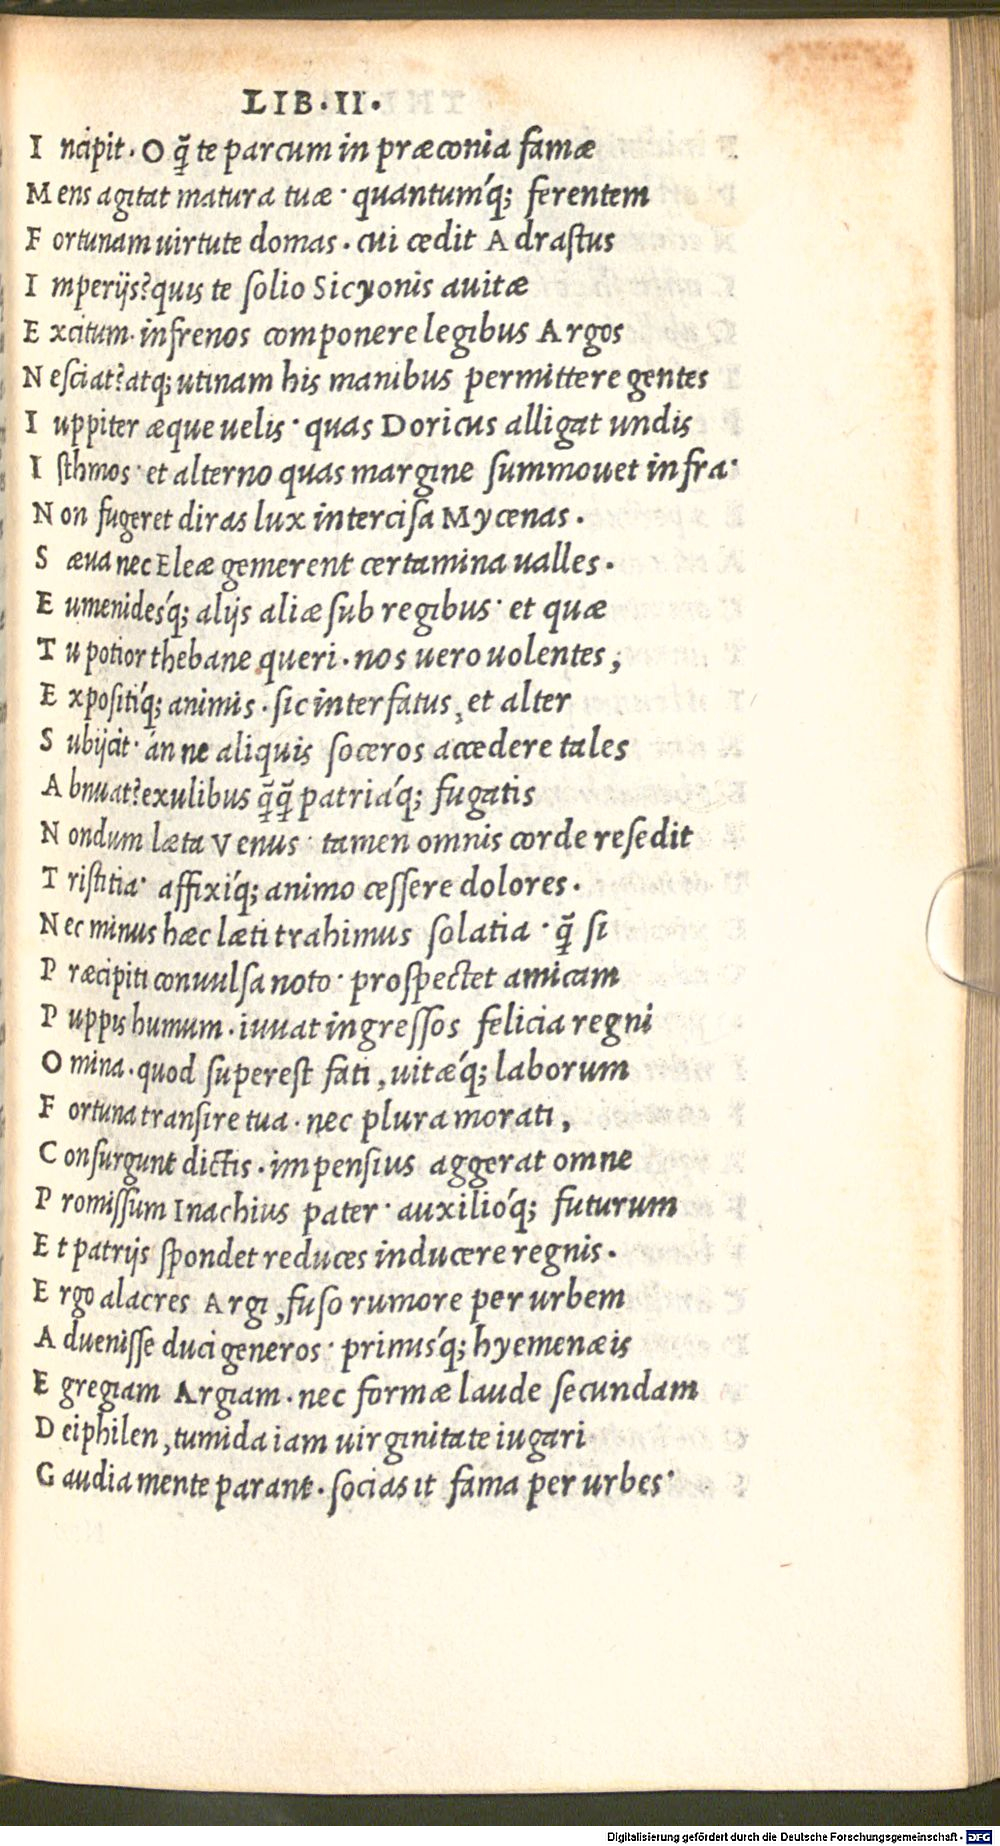 LIB·II·
I ncipit· O q̃ te parcum in præconia famæ
M ens agitat matura tuæ· quantumq́; ferentem
F ortunam uirtute domas· cui cedit Adrastus
I mperijs? quis te solio Sicyonis auitæ
E xcitum· infrenos componere legibus Argos
N esciat? atq; utinam his manibus permittere gentes
I uppiter æque uelis· quas Doricus alligat undis
I sthmos· et alterno quas margine summouet infra·
N on fugeret diras lux intercisa Mycenas·
S æua nec Eleæ gemerent certamina ualles·
E umenidesq́; alijs aliæ sub regibus· et quæ
T u potior thebane queri· nos uero uolentes;
E xpositiq́; animis· sic interfatus, et alter
S ubijcit· án ne aliquis soceros accedere tales
A bnuat? exulibus q̃q̃ patriaq́; fugatis
N ondum læta Venus· tamen omnis corde resedit
T ristitia· affixiq́; animo cessere dolores·
N ec minus hæc læti trahimus solatia· q̃ si
P ræcipiti conuulsa noto· prospectet amicam
P uppis humum· iuuat ingressos felicia regni
O mina· quod superest fati, uitæq́; laborum
F ortuna transire tua· nec plura morati,
C onsurgunt dictis· impensius aggerat omne
P romissum Inachius pater· auxilioq́; futurum
E t patrijs spondet reduces inducere regnis·
E rgo alacres Argi, fuso rumore per urbem
A duenisse duci generos· primisq́; hyemenæis
E gregiam Argiam· nec formæ laude secundam
D eiphilen, tumida iam uirginitate iugari
G audia mente parant· socias it fama per urbes·
Digitalisierung gefördert durch die Deutsche Forschungsgemeinschaft - DFG